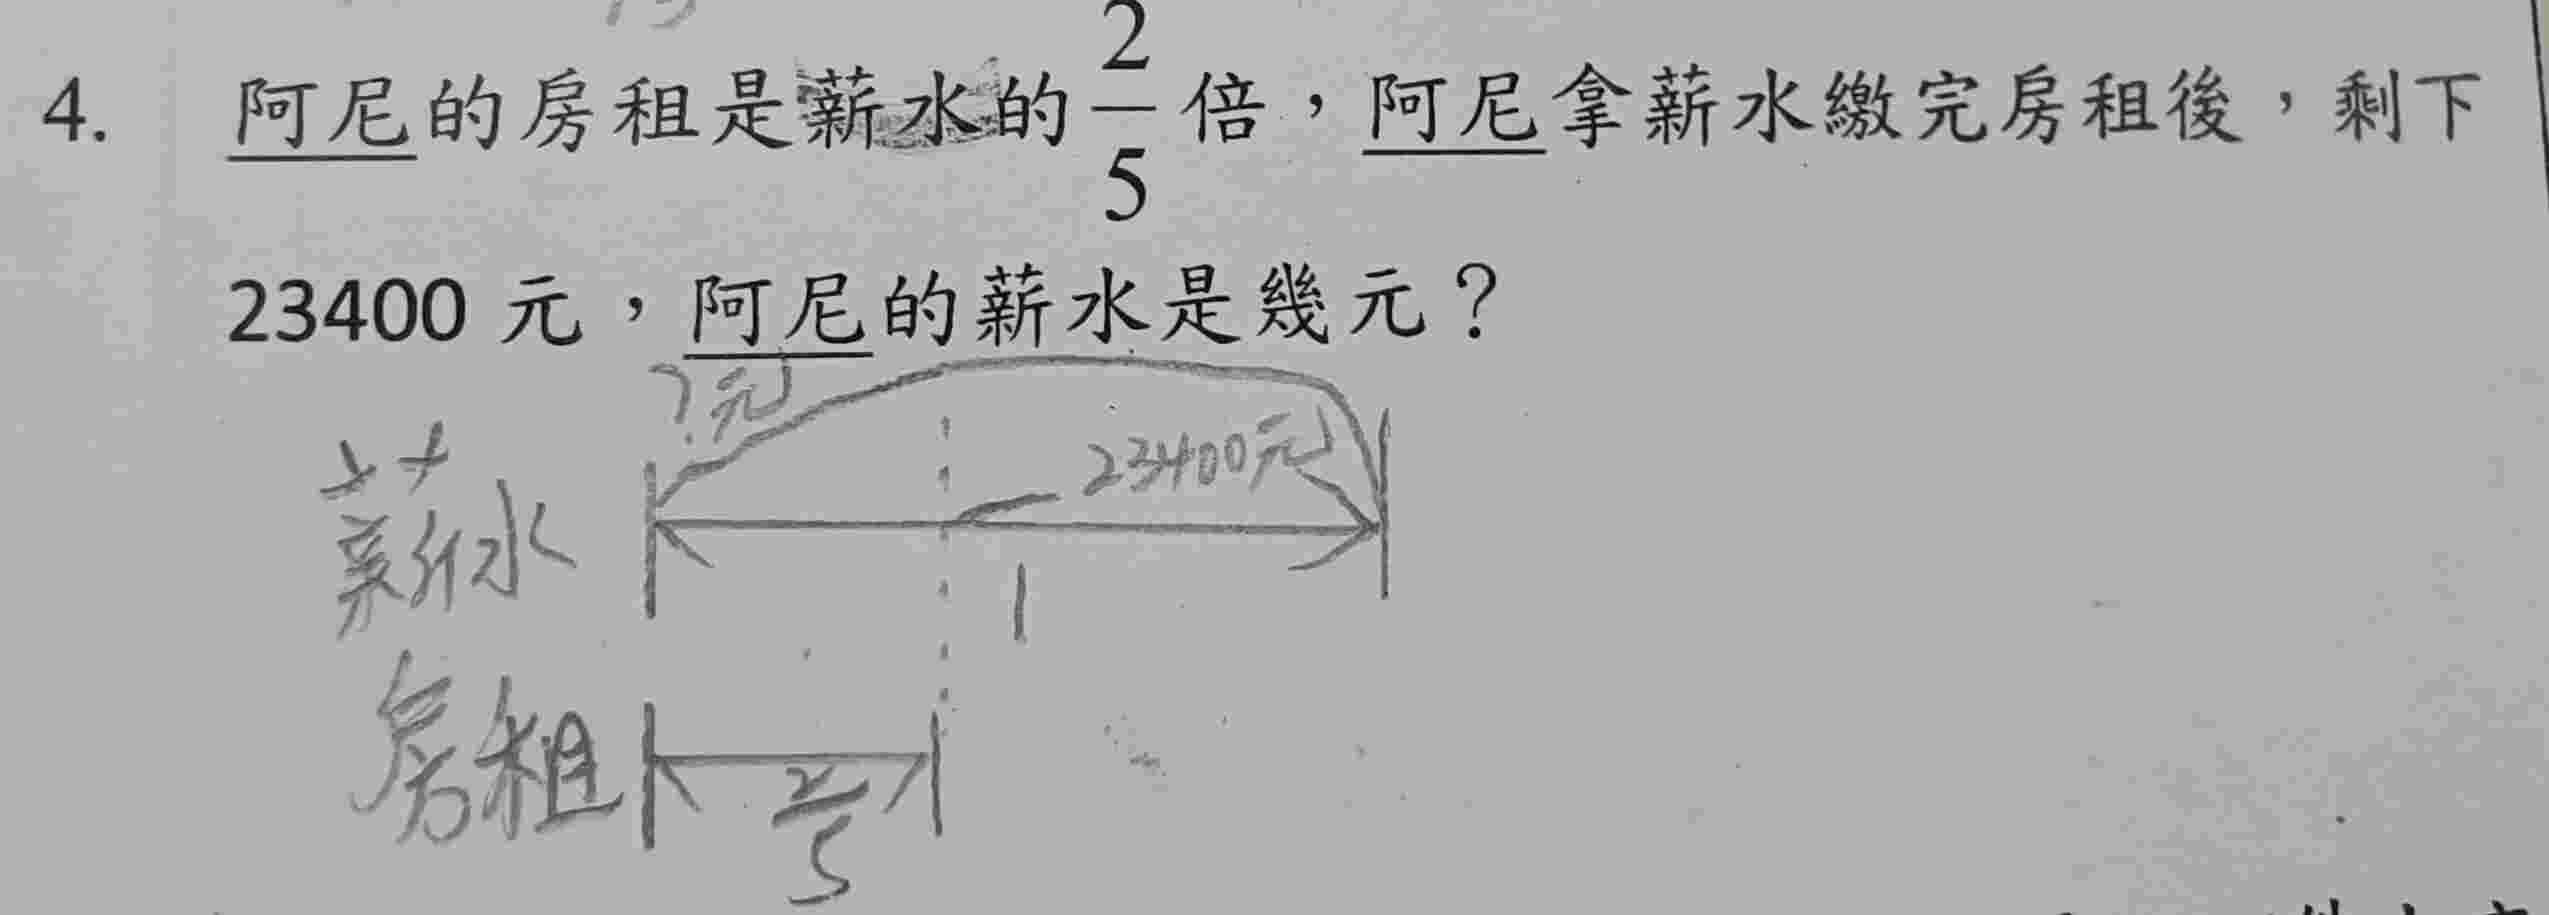 4. 阿尼的房租是薪水的 2/5 倍，阿尼拿薪水繳完房租後，剩下
23400 元，阿尼的薪水是幾元？
?元
23400元
薪水
1
房租
2/5